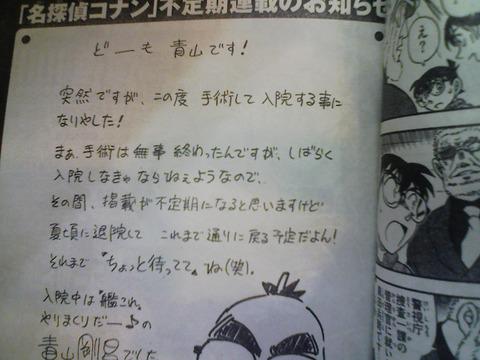 「名探偵コナン」不定期連載のお知らせ
どーも 青山です!
突然ですが、この度 手術して入院する事に
なりやした!
まぁ、手術は無事 終わったんですが、しばらく
入院しなきゃならねぇようなので、
その間、掲載が不定期になると思いますけど
夏頃に退院して これまで通りに戻る予定だよん!
それまで〝ちょっと待ってて〟ね(笑)。
入院中は〝艦これ〟
やりまくりだー♪の
青山剛昌でした
え?
警視庁
捜査一課の
管理官に